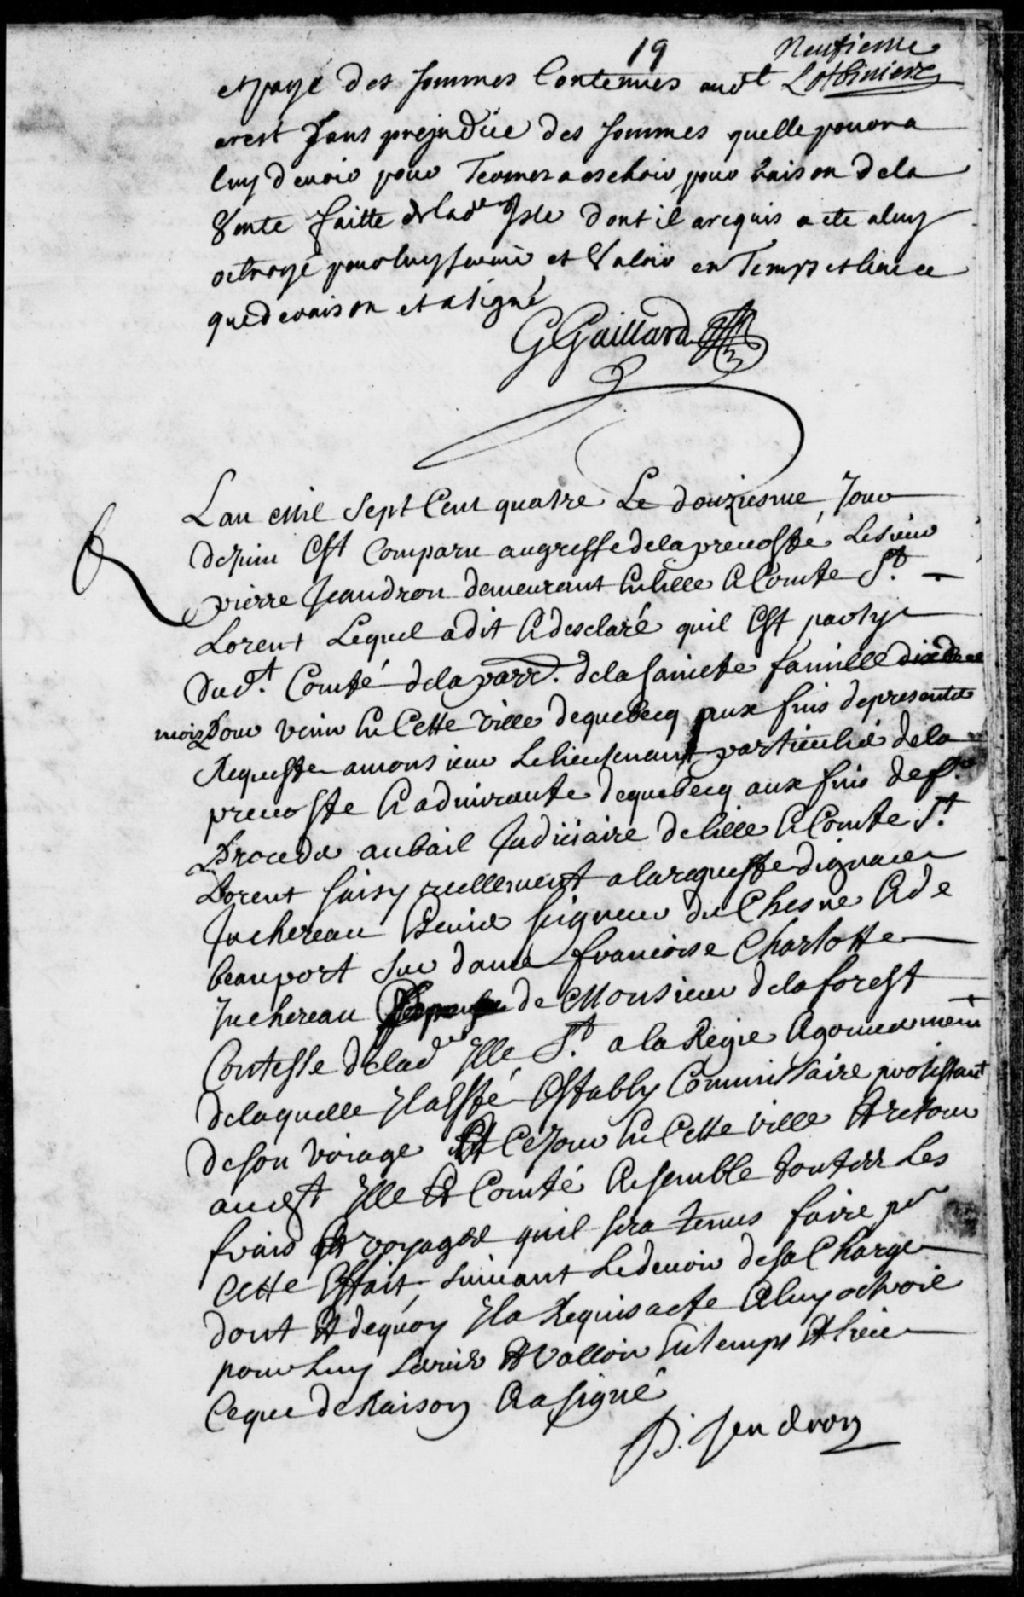 19
Neufieme
Lotbiniere
et payé des sommes Contenues aud.t
arest sans prejudice des sommes quelle pouora
luy devoir pour Termes a eschoir pour raison de la
Vente faitte de lad.e Isle dont il a requis acte a luy
octroyé pour luy servir et Valoir en Temps et lieu ce
que de raison et a signé
G Gaillard
Lan Mil Sept Cent quatre Le douziesme Jour
de juin Est Comparu au greffe de la prevosté Le sieur
pierre Jeandron demeurant En lille & Comte S.t
Lorent Lequel a dit & desclaré quil Est party
dud.t Comté de la parr. de la sainete famille
mois pour venir En Cette ville de quebecq aux fins de presenter
Requeste a monsieur Le lieutenant particulie de la
prevoste & admirauté de quebecq aux fins de f.re
Proceder au bail Judiciaire de lille & Comte S.t
Lorent saisy reellement a la requeste dignace
Juchereau Seigneur du Chesne & de
beauport sur dame francoise Charlotte
Juchereau de Monsieur de la forest
Contesse de lad.e Ille S.t a la Regie & gouvernement
de laquelle Il a Esté Estably Commissaire protestant
de son voiage Et Ce Jour En Cette ville Et retour
aud.t Ille Et Comté Ensemble touts les
frais Et voyages quil sera tenus faire p.r
Cette Effait, suivant Le devoir de sa Charge
dont Et de quoy Il a Requis acte a luy octroié
pour Luy servir Et valloir En temps Et lieu
Ce que de Raison & a signé
P. Jendron